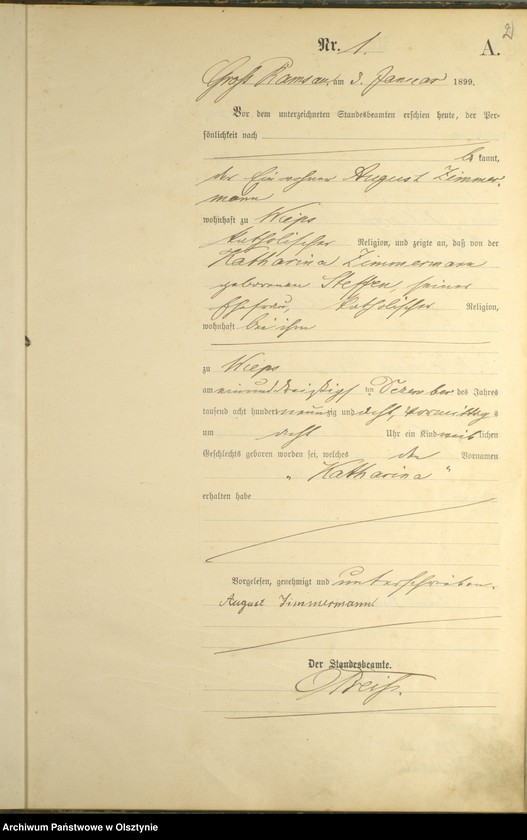 2
Nr. 1.
A.
Groß Ramsau, am 3. Januar 1899.
Vor dem unterzeichneten Standesbeamten erschien heute, der Per-
sönlichkeit nach
be kannt,
der Einwohner August Zimmer-
mann
wohnhaft zu Wieps
katholischer Religion, und zeigte an, daß von der
Katharina Zimmermann
geborenen Steffen, seiner
Ehefrau, katholischer Religion,
wohnhaft bei ihm
zu Wieps
am einunddreißigsten Dezember des Jahres
tausend acht hundert neunzig und acht, Vormittags
um acht Uhr ein Kind weiblichen
Geschlechts geboren worden sei, welches den Vornamen
„Katharina“
erhalten habe
Vorgelesen, genehmigt und unterschrieben.
August Zimmermann
Der Standesbeamte.
Archiwum Państwowe w Olsztynie